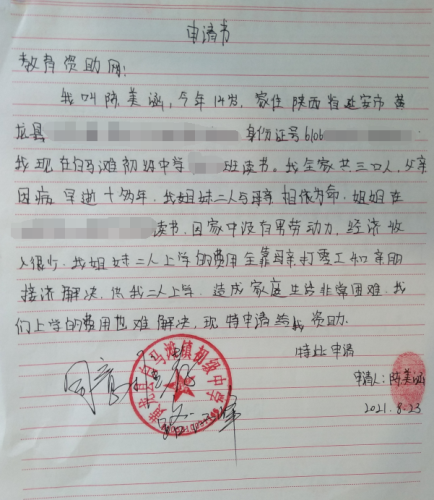 申请书
教育资助网:
我叫陈美涵，今年14岁，家住陕西省延安市黄
龙县 身份证号6106
我现在白马滩初级中学 班读书。我全家共三口人，父亲
因病早逝十多年，我姐妹二人与母亲相依为命，姐姐在
读书，因家中没有男劳动力，经济收
入很少，我姐妹二人上学的费用全靠母亲打零工和亲朋
接济解决，供我二人上学，造成家庭生活非常困难，我
们上学的费用也难解决，现特申请给我资助。
特此申请
申请人:陈美涵
2021.8.23
黄龙县白马滩镇初级中学